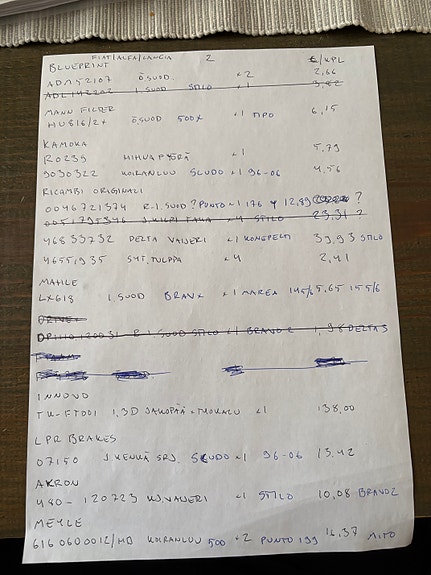 FIAT/ALFA/LANCIA 2 €/KPL
BLUEPRINT
ADM52107 ÖSUOD. x2 2,66
ADL142202 I.SUOD STILO x1 3,82
MANN FILTER
HU816/2X ÖSUOD 500X x1 TIPO 6,15
KAMOKA
R0239 HIHNAPYÖRÄ x1 5,79
9030322 KOIRANLUU SCUDO x1 96-06 4,56
RICAMBI ORIGINALI
0046721374 R.I.SUOD ? PUNTO x1 176 Y 12,89 ?
0051795346 J.KILPI TAKA x4 STILO 23,31 ?
46833732 DELTA VAIJERI x1 KONEPELTI 39,93 STILO
46551935 SYT.TULPPA x4 2,41
MAHLE
LX618 I.SUOD BRAVA x1 MAREA 145/6 5,65 155/6
DRIVE+
R.I.SUOD STILO x1 BRAVO 2 1,98 DELTA 3
INNOVO
TK-FT001 1,3D JAKOPÄÄ+TYÖKALU x1 138,00
LPR BRAKES
07150 J.KENKÄ SRJ SCUDO x1 96-06 13,42
AKRON
480-120723 KJ.VAIJERI x1 STILO 10,08 BRAVO2
MEYLE
6160600012/HD KOIRANLUU 500 x2 PUNTO 199 16,37 MITO